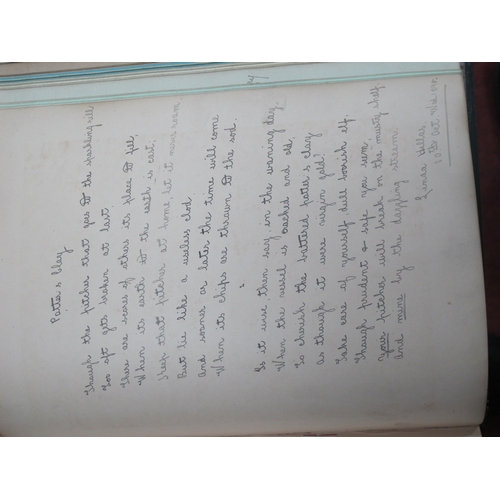 Potter's Clay
Though the pitcher that goes to the sparkling rill
Too oft gets broken at last
There are scores of others its place to fill
When its earth to the earth is cast.
Keep that pitcher at home, let it never roam
But lie like a useless clod
And sooner or later the time will come
When its chips are thrown to the sod.
2
Is it wise then say in the waning day
When the vessel is cracked and old
To cherish the battered potter's clay
As though it were virgin gold?
Take care of yourself dull boorish elf.
Though prudent & safe you seem
Your pitcher will break on the musty shelf
And mine by the dazzling stream.
Linda
10th Oct